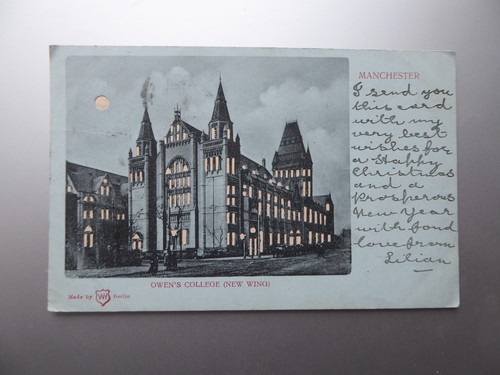 MANCHESTER
I send you
this card
with my
very best
wishes for
a Happy
Christmas
and a
prosperous
New Year
with fond
love from
Lilian
OWEN'S COLLEGE (NEW WING)
Made by WH Berlin